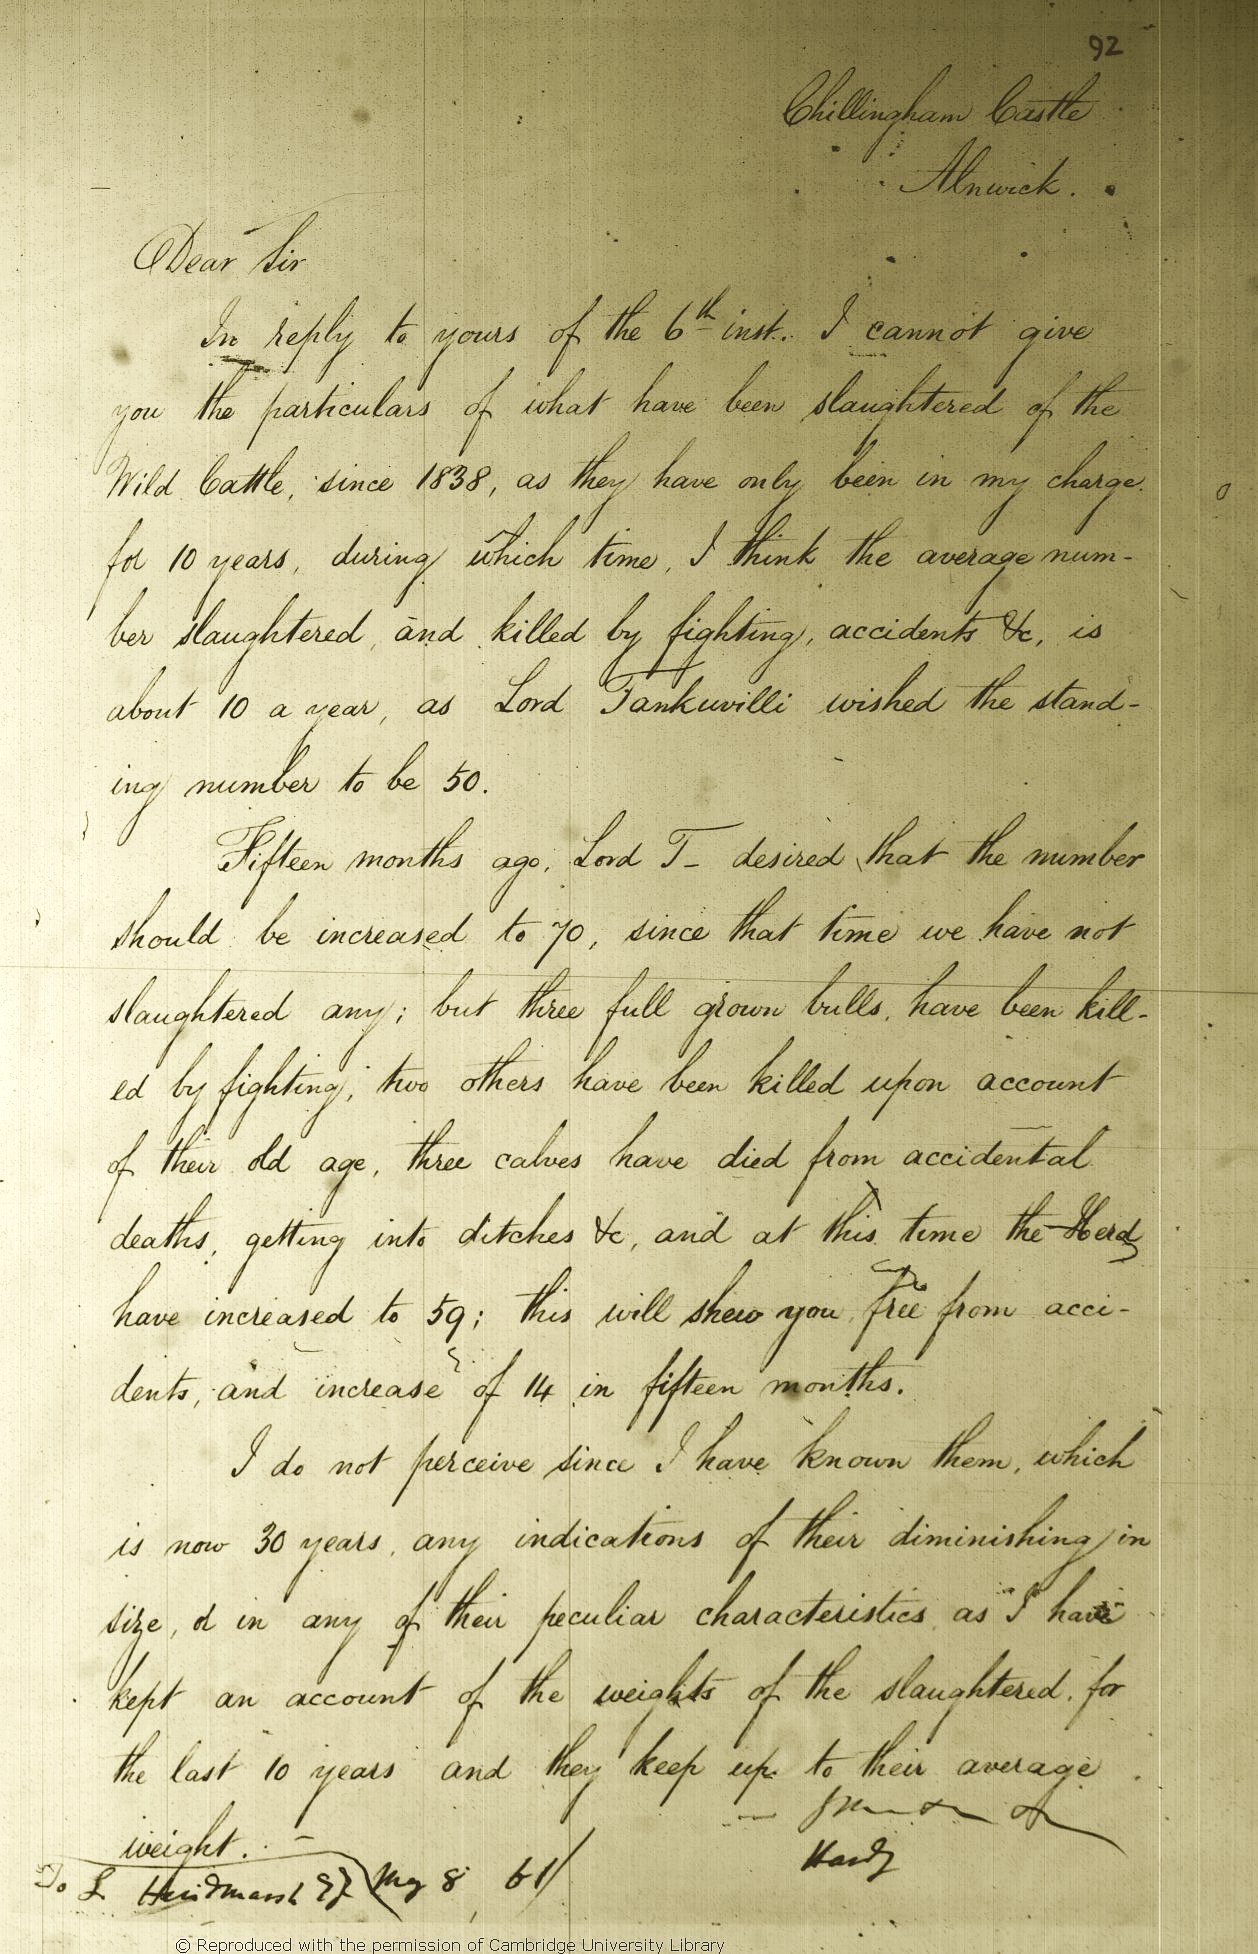 92
Chillingham Castle
Alnwick.
Dear Sir
In reply to yours of the 6th inst. I cannot give
you the particulars of what have been slaughtered of the
Wild Cattle, since 1838, as they have only been in my charge
for 10 years, during which time, I think the average num-
ber slaughtered, and killed by fighting, accidents &c, is
about 10 a year, as Lord Tankuvilli wished the stand-
ing number to be 50.
Fifteen months ago, Lord T– desired that the number
should be increased to 70, since that time we have not
slaughtered any; but three full grown bulls, have been kill-
ed by fighting; two others have been killed upon account
of their old age, three calves have died from accidental
deaths, getting into ditches &c, and at this time the Herd
have increased to 59; this will shew you, free from acci-
dents, and increase of 14 in fifteen months.
I do not perceive since I have known them, which
is now 30 years, any indications of their diminishing in
size, or in any of their peculiar characteristics, as I have
kept an account of the weights of the slaughtered, for
the last 10 years and they keep up to their average
weight.
Hardy
To L Hindmarsh Esq May 8, 61
© Reproduced with the permission of Cambridge University Library